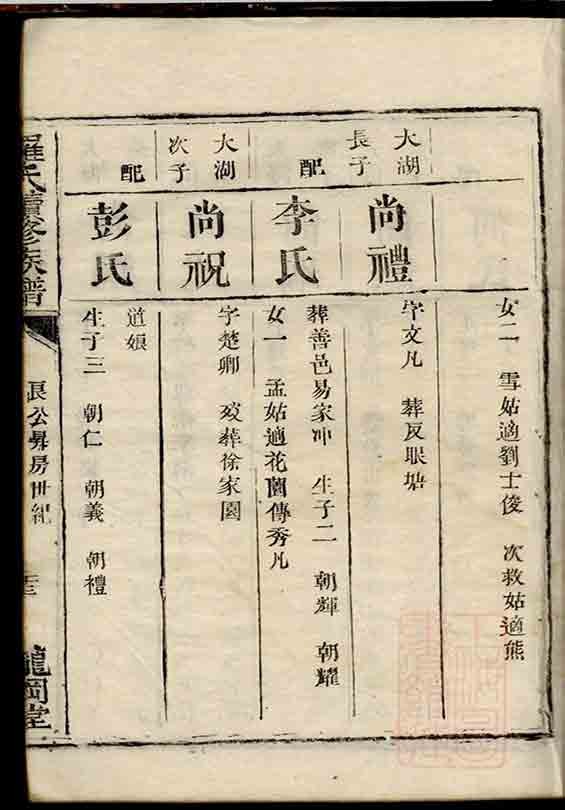 女二 雪姑適劉士俊 次救姑適熊
大湖
長子
尚禮
字文凡 葬反眼塘
配
李氏
葬善邑易家冲 生子二 朝輝 朝耀
女一 孟姑適花園傳秀凡
大湖
次子
尚祝
字楚卿 歿葬徐家園
配
彭氏
道娘
生子三 朝仁 朝義 朝禮
羅氏續修族譜
長公昇房世紀
龍岡堂